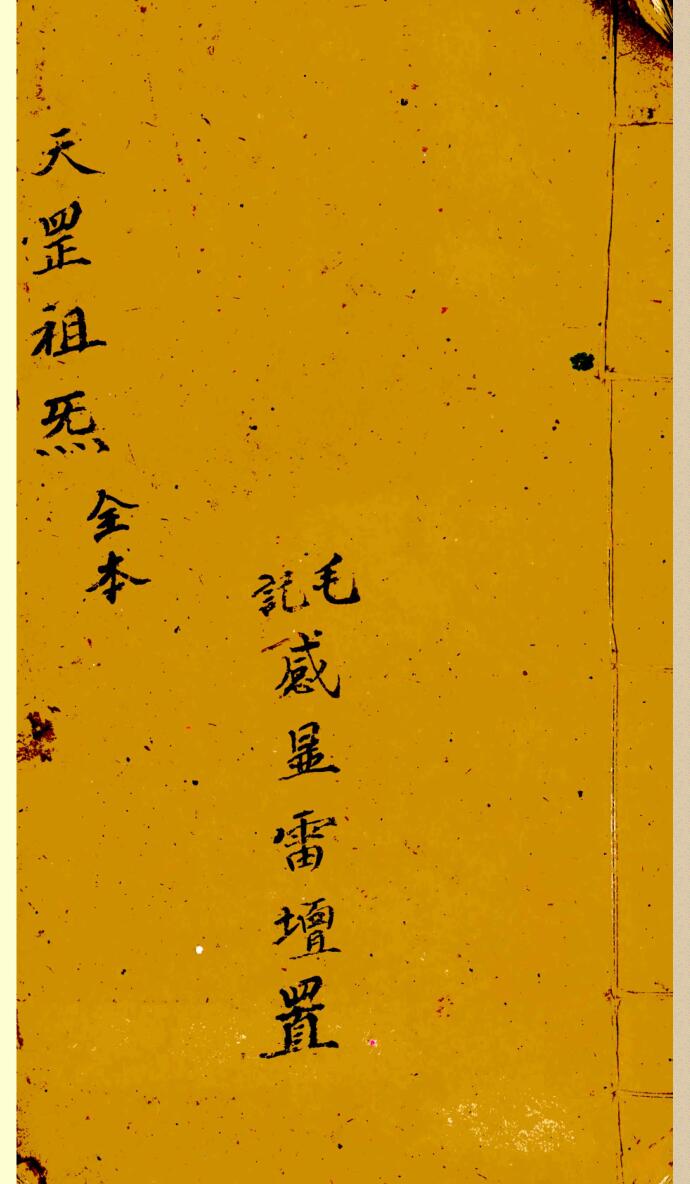 毛記
感显雷壇置
天罡祖炁
全本